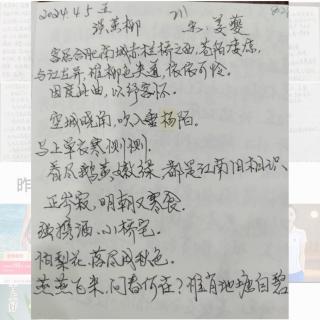 2024.4.5 五
淡黄柳
宋:姜夔
客居合肥南城赤栏桥之西,巷陌凄凉,
与江左异,惟柳色夹道,依依可怜。
因度此曲,以纾客怀。
空城晓角,吹入垂杨陌。
马上单衣寒恻恻。
看尽鹅黄嫩绿,都是江南旧相识。
正岑寂,明朝又寒食。
强携酒、小桥宅。
怕梨花落尽成秋色。
燕燕飞来,问春何在?惟有池塘自碧
昨